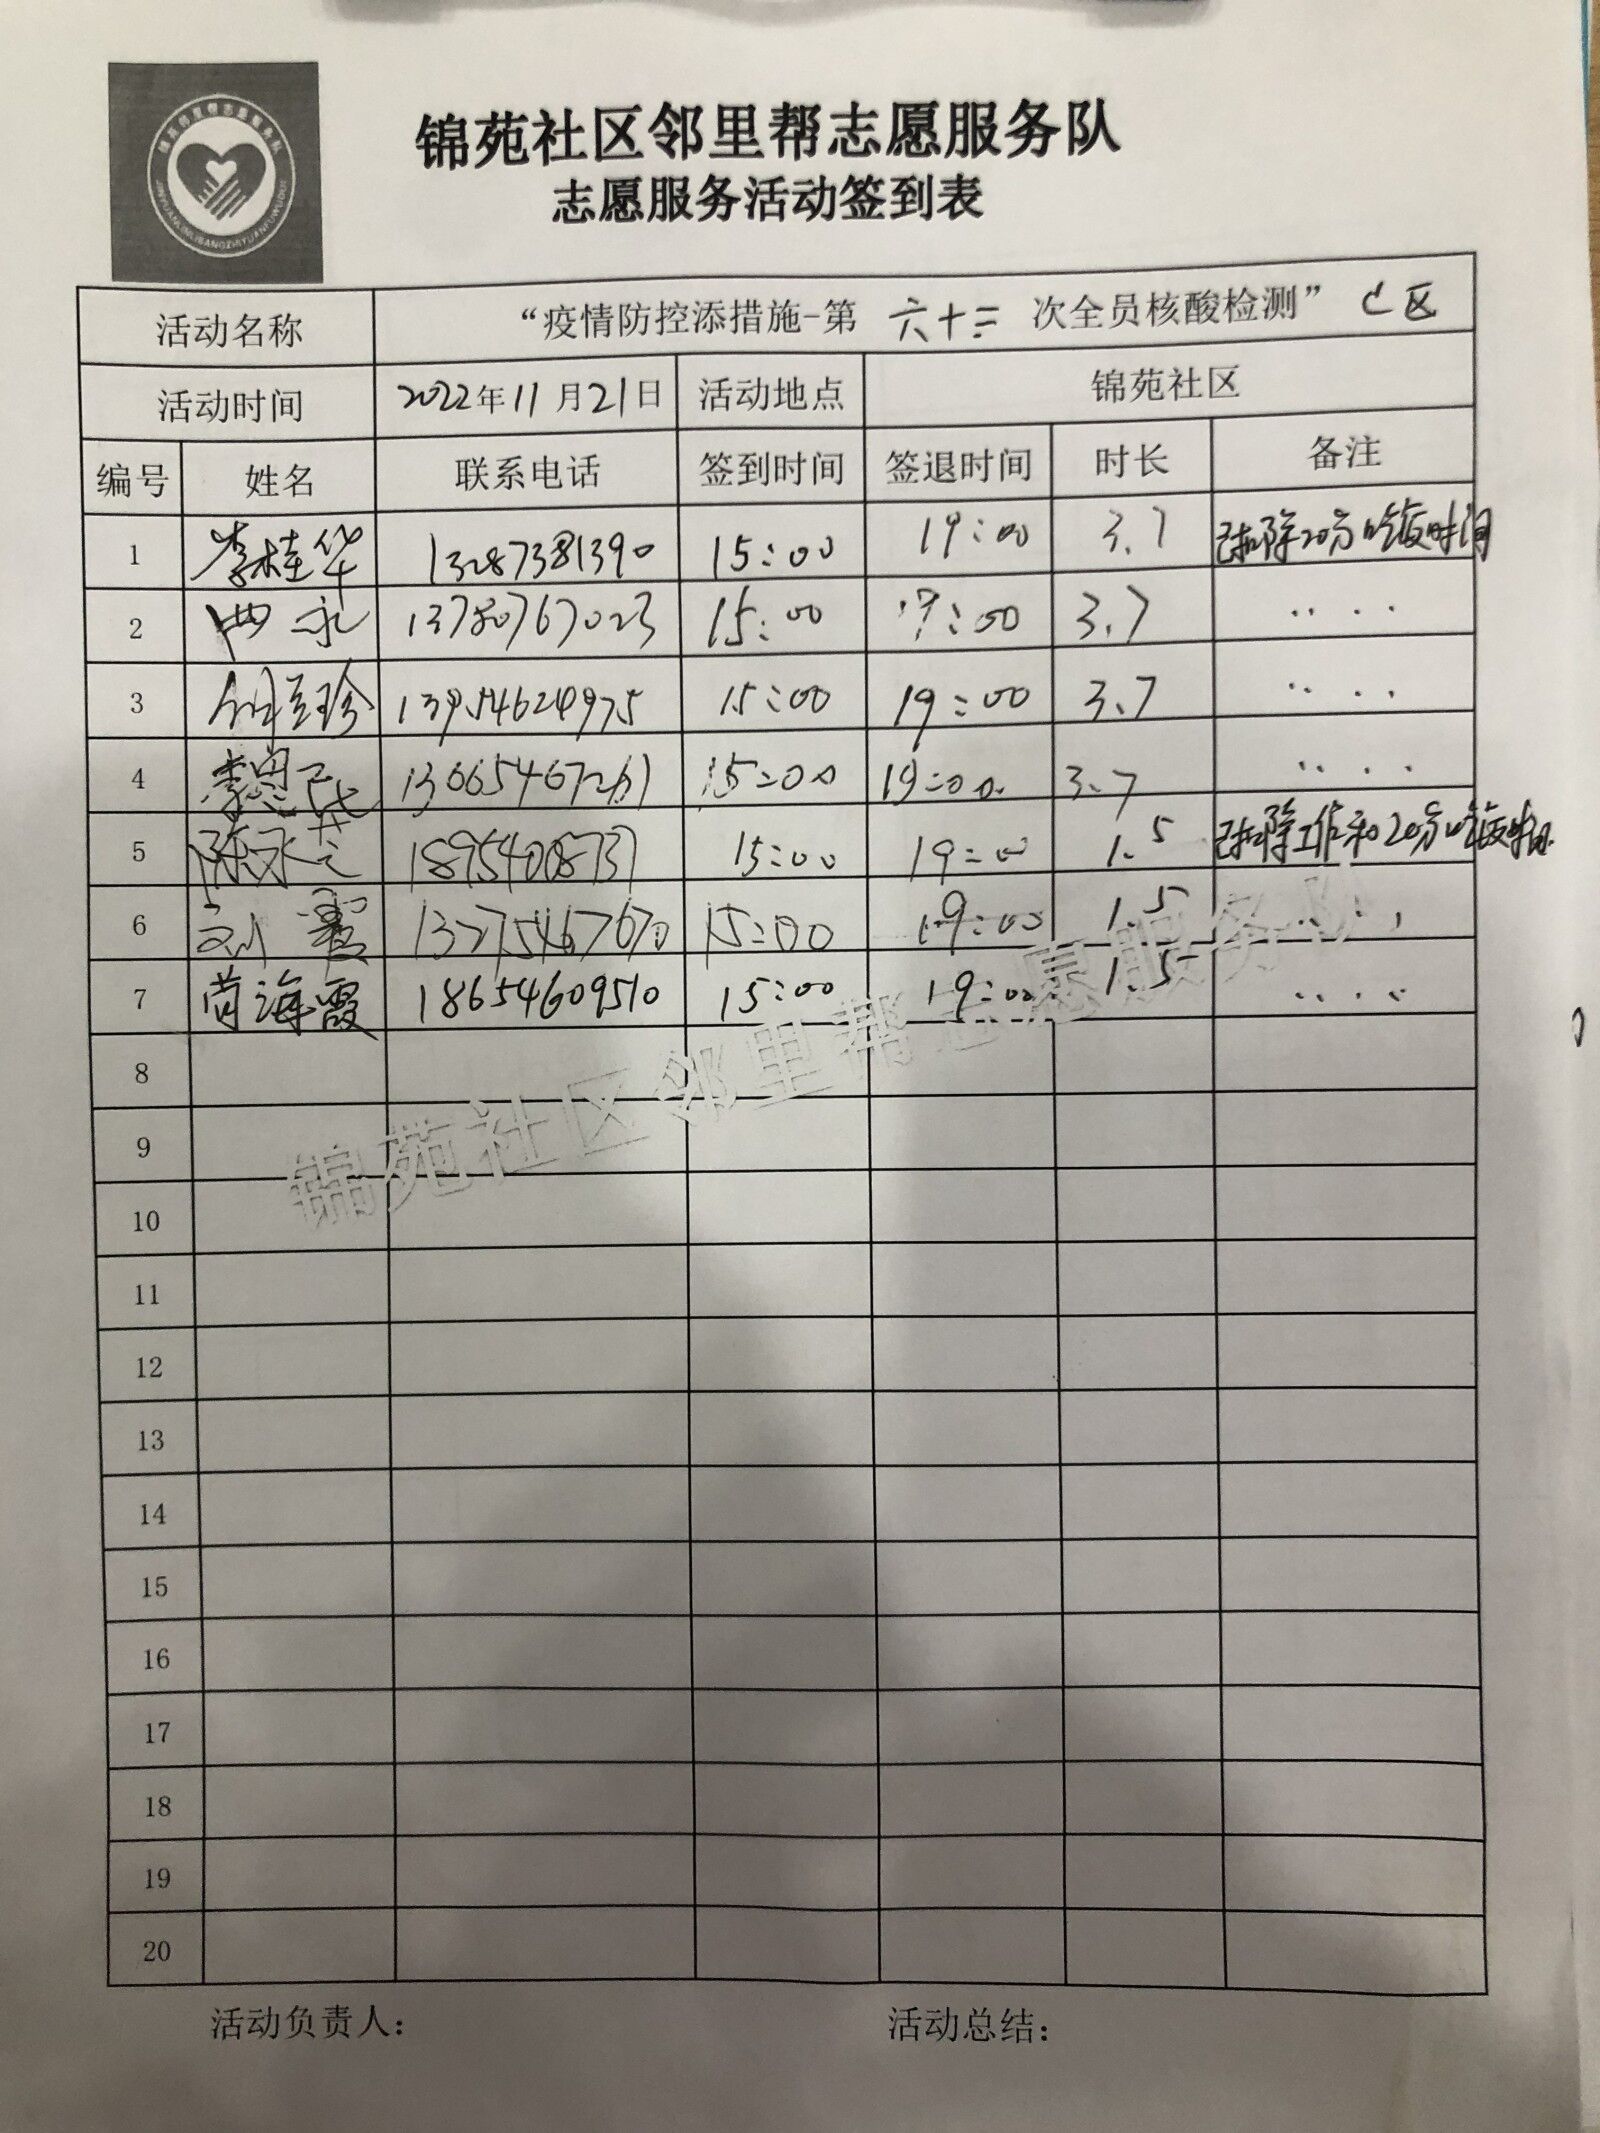 锦苑社区邻里帮志愿服务队
志愿服务活动签到表
活动名称 “疫情防控添措施-第六十三次全员核酸检测” C区
活动时间 2022年11月21日 活动地点 锦苑社区
编号 姓名 联系电话 签到时间 签退时间 时长 备注
1 李桂华 13287381390 15:00 19:00 3.7 已扣除20分吃饭时间
2 13780767023 15:00 19:00 3.7 ....
3 13954624975 15:00 19:00 3.7 ....
4 15:00 19:00 3.7 ....
5 陈永芝 15:00 19:00 1.5 已扣除工作和20分吃饭时间
6 刘霞 13275467670 15:00 19:00 1.5 ....
7 肖海霞 18654609510 15:00 19:00 1.5 ....
锦苑社区邻里帮志愿服务队
8
9
10
11
12
13
14
15
16
17
18
19
20
活动负责人： 活动总结：